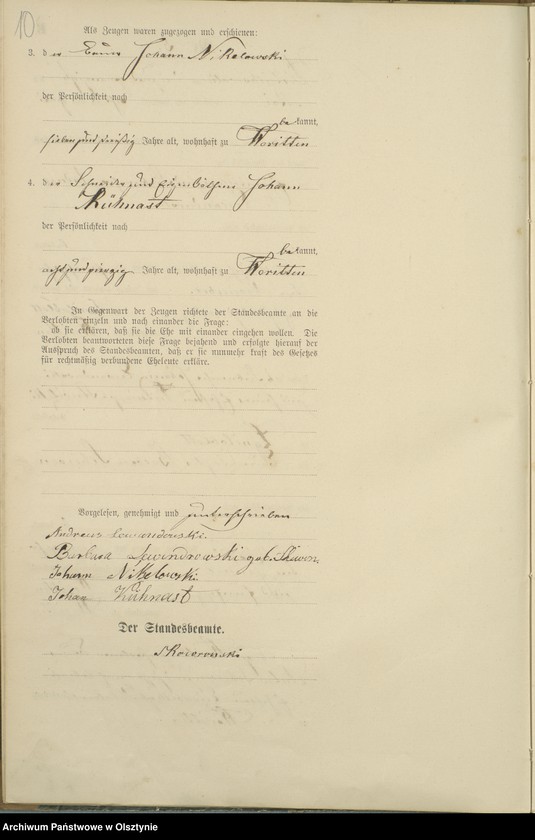 10
Als Zeugen waren zugezogen und erschienen:
3. der Bauer Johann Nikelowski
der Persönlichkeit nach
bekannt,
siebenunddreißig Jahre alt, wohnhaft zu Woritten
4. der Schneider und Johann
Kühnast
der Persönlichkeit nach
bekannt,
achtundvierzig Jahre alt, wohnhaft zu Woritten
In Gegenwart der Zeugen richtete der Standesbeamte an die
Verlobten einzeln und nach einander die Frage:
ob sie erklären, daß sie die Ehe mit einander eingehen wollen. Die
Verlobten beantworteten diese Frage bejahend und erfolgte hierauf der
Ausspruch des Standesbeamten, daß er sie nunmehr kraft des Gesetzes
für rechtmäßig verbundene Eheleute erkläre.
Vorgelesen, genehmigt und unterschrieben
Andreas
Barbara geb.
Johann Nikelowski
Johan Kühnast
Der Standesbeamte.
Archiwum Państwowe w Olsztynie